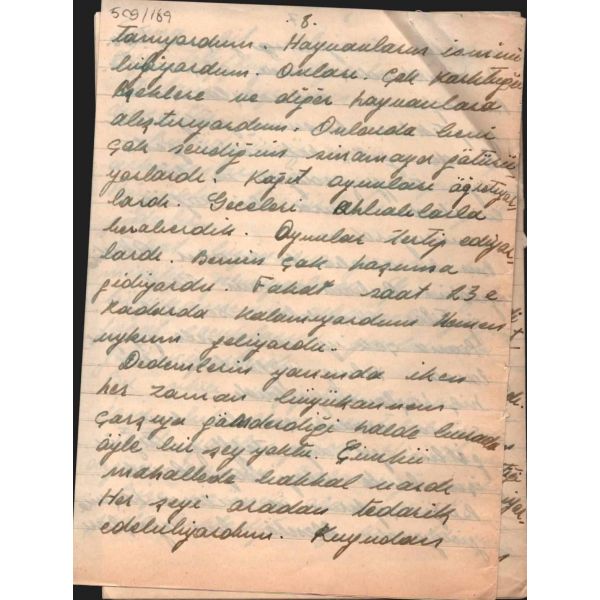 509/169
8.
tanıyordum. Hayvanların ismini
biliyordum. Onları. Çok korktuğu
eşeklere ve diğer hayvanlara
alıştırıyordum. Onlarda beni
çok sevdiğim sinamaya götürü
yorlardı. Kağıt oyunları öğretiyor
lardı. Geceleri ahbablarla
beraberdik. Oyunlar tertip ediyor
lardı. Benim çok hoşuma
gidiyordu. Fakat saat 23 e
kadarda kalamıyordum Hemen
uykum geliyordu.
Dedemlerin yanında iken
her zaman büyükannem
çarşıya gönderdiği halde burada
öyle bir şey yoktu. Çünkü
mahallede bakkal vardı
Her şeyi oradan tedarik
edebiliyordum. Kuyudan